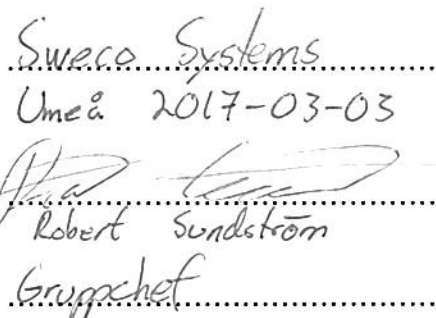 Sweco Systems
Umeå 2017-03-03
Robert Sundström
Gruppchef